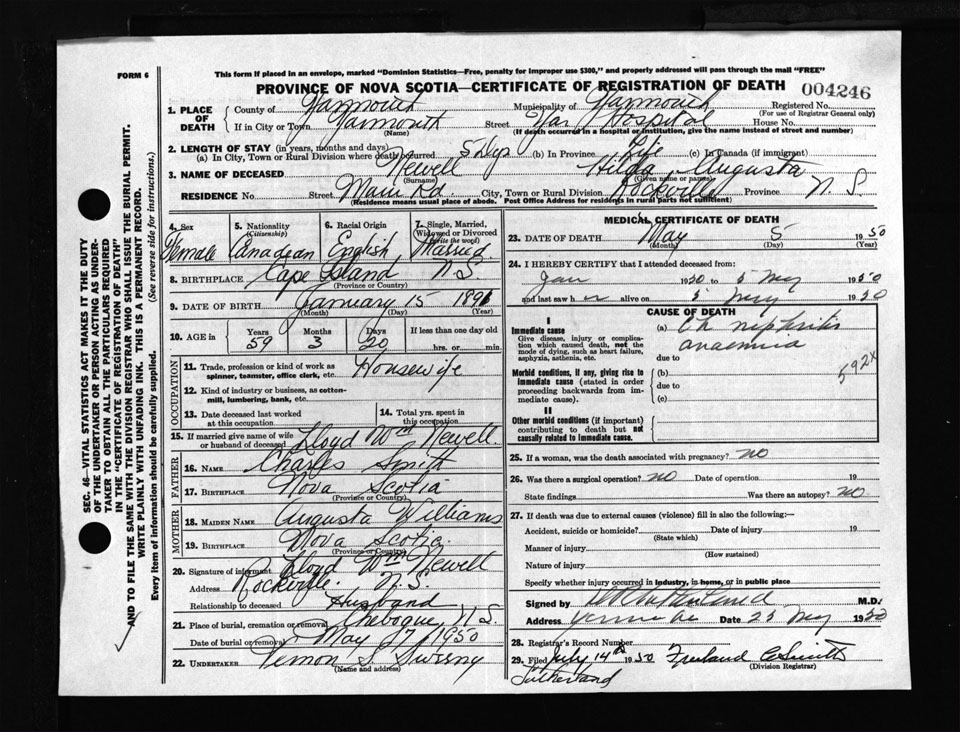 FORM 6
This form if placed in an envelope, marked "Dominion Statistics—Free, penalty for improper use $300," and properly addressed will pass through the mail "FREE"
PROVINCE OF NOVA SCOTIA—CERTIFICATE OF REGISTRATION OF DEATH
004246
1. PLACE OF DEATH
County of Yarmouth Municipality of Yarmouth Registered No.
(For use of Registrar General only)
If in City or Town Yarmouth Street Yar Hospital House No.
(Name) (If death occurred in a hospital or institution, give the name instead of street and number)
2. LENGTH OF STAY (in years, months and days)
(a) In City, Town or Rural Division where death occurred 5 Dys (b) In Province Life (c) In Canada (if immigrant)
3. NAME OF DECEASED Newell Hilda Augusta
(Surname) (Given name or names)
RESIDENCE No. Street Main Rd. City, Town or Rural Division Rockville Province N. S.
(Residence means usual place of abode. Post Office Address for residents in rural parts not sufficient)
4. Sex Female
5. Nationality (Citizenship) Canadian
6. Racial Origin English
7. Single, Married, Widowed or Divorced (Write the word) Married
8. BIRTHPLACE Cape Island N.S.
(Province or Country)
9. DATE OF BIRTH January 15 1891
(Month) (Day) (Year)
10. AGE in Years 59 Months 3 Days 20 If less than one day old
hrs. or min.
OCCUPATION
11. Trade, profession or kind of work as spinner, teamster, office clerk, etc. Housewife
12. Kind of industry or business, as cotton-mill, lumbering, bank, etc.
13. Date deceased last worked at this occupation
14. Total yrs. spent in this occupation
15. If married give name of wife or husband of deceased Lloyd Wm Newell
FATHER
16. NAME Charles Smith
17. BIRTHPLACE Nova Scotia
(Province or Country)
MOTHER
18. MAIDEN NAME Augusta Williams
19. BIRTHPLACE Nova Scotia
(Province or Country)
20. Signature of informant Lloyd Wm Newell
Address Rockville. N. S.
Relationship to deceased Husband
21. Place of burial, cremation or removal Chebogue, N S.
Date of burial or removal May 7, 1950
22. UNDERTAKER Vernon S. Sweeny
(Name and address)
MEDICAL CERTIFICATE OF DEATH
23. DATE OF DEATH May 5 1950
(Month) (Day) (Year)
24. I HEREBY CERTIFY that I attended deceased from:
Jan 1950 to 5 May 1950
and last saw her alive on 5 May 1950
CAUSE OF DEATH
I
Immediate cause
Give disease, injury or complication which caused death, not the mode of dying, such as heart failure, asphyxia, asthenia, etc.
(a) Ch nephritis
anaemia
due to
592x
Morbid conditions, if any, giving rise to immediate cause (stated in order proceeding backwards from immediate cause).
(b)
due to
(c)
II
Other morbid conditions (if important) contributing to death but not causally related to immediate cause.
25. If a woman, was the death associated with pregnancy? NO
26. Was there a surgical operation? NO Date of operation 19
State findings Was there an autopsy? NO
27. If death was due to external causes (violence) fill in also the following:—
Accident, suicide or homicide? Date of injury 19
(State which)
Manner of injury
(How sustained)
Nature of injury
Specify whether injury occurred in industry, in home, or in public place
Signed by M.D.
Address Date 23 May 1950
28. Registrar's Record Number
29. Filed July 14th 1950 Freeland C Smith
(Division Registrar)
Sutherland
SEC. 46—VITAL STATISTICS ACT MAKES IT THE DUTY
OF THE UNDERTAKER OR PERSON ACTING AS UNDER-
TAKER TO OBTAIN ALL THE PARTICULARS REQUIRED
IN THE "CERTIFICATE OF REGISTRATION OF DEATH"
AND TO FILE THE SAME WITH THE DIVISION REGISTRAR WHO SHALL ISSUE THE BURIAL PERMIT.
WRITE PLAINLY WITH UNFADING INK. THIS IS A PERMANENT RECORD.
Every item of information should be carefully supplied. (See reverse side for instructions.)